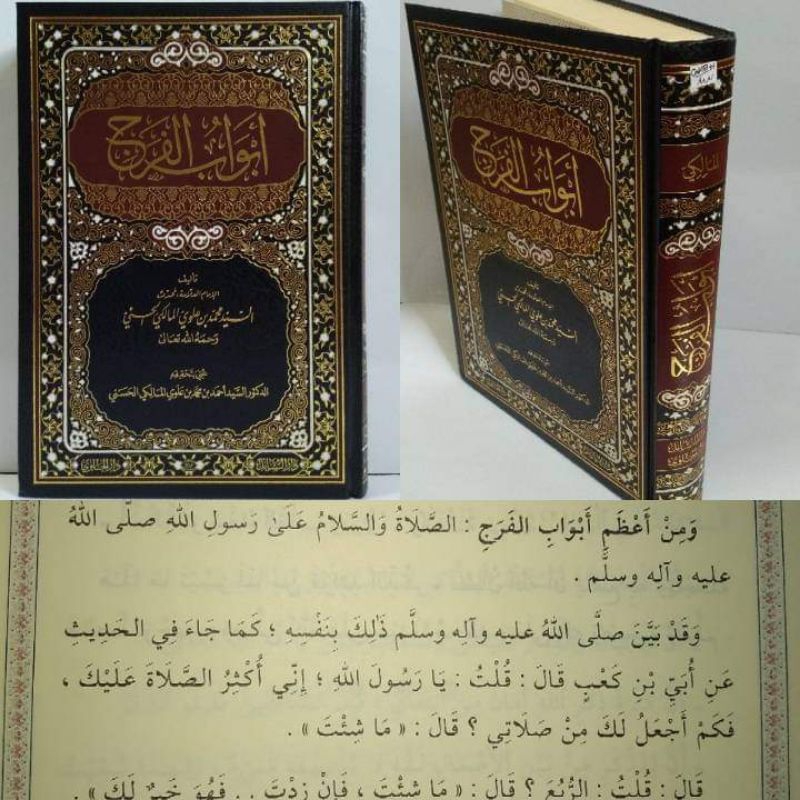 أبواب الفرج
تأليف
السيد محمد بن علوي المالكي الحسني
رحمه الله تعالى
الدكتور السيد أحمد بن محمد بن علوي المالكي الحسني
أبواب الفرج
السيد محمد بن علوي المالكي الحسني
المالكي
أبواب الفرج
وَمِنْ أَعْظَمِ أَبْوَابِ الفَرَجِ : الصَّلَاةُ وَالسَّلَامُ عَلَىٰ رَسولِ اللهِ صلَّى اللهُ
عليه وآلِه وسلَّم .
وَقَدْ بَيَّنَ صلَّى اللهُ عليه وآلِه وسلَّم ذَٰلِكَ بِنَفْسِهِ ؛ كَمَا جَاءَ فِي الحَدِيثِ
عَنِ أُبَيِّ بْنِ كَعْبٍ قَالَ : قُلْتُ : يَا رَسُولَ اللهِ ؛ إِنِّي أُكْثِرُ الصَّلَاةَ عَلَيْكَ ،
فَكَمْ أَجْعَلُ لَكَ مِنْ صَلَاتِي ؟ قَالَ : « مَا شِئْتَ » .
قَالَ : قُلْتُ : الرُّبُعَ ؟ قَالَ : « مَا شِئْتَ ، فَإِنْ زِدْتَ . . فَهُوَ خَيْرٌ لَكَ » .